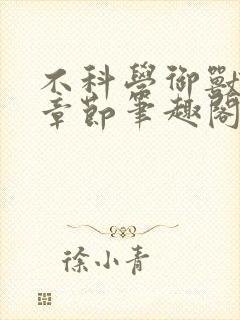 不科學御獸
章節筆趣閣
徐小青